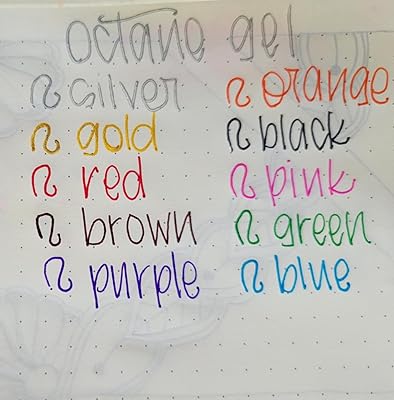 octane gel
silver orange
gold black
red pink
brown green
purple blue